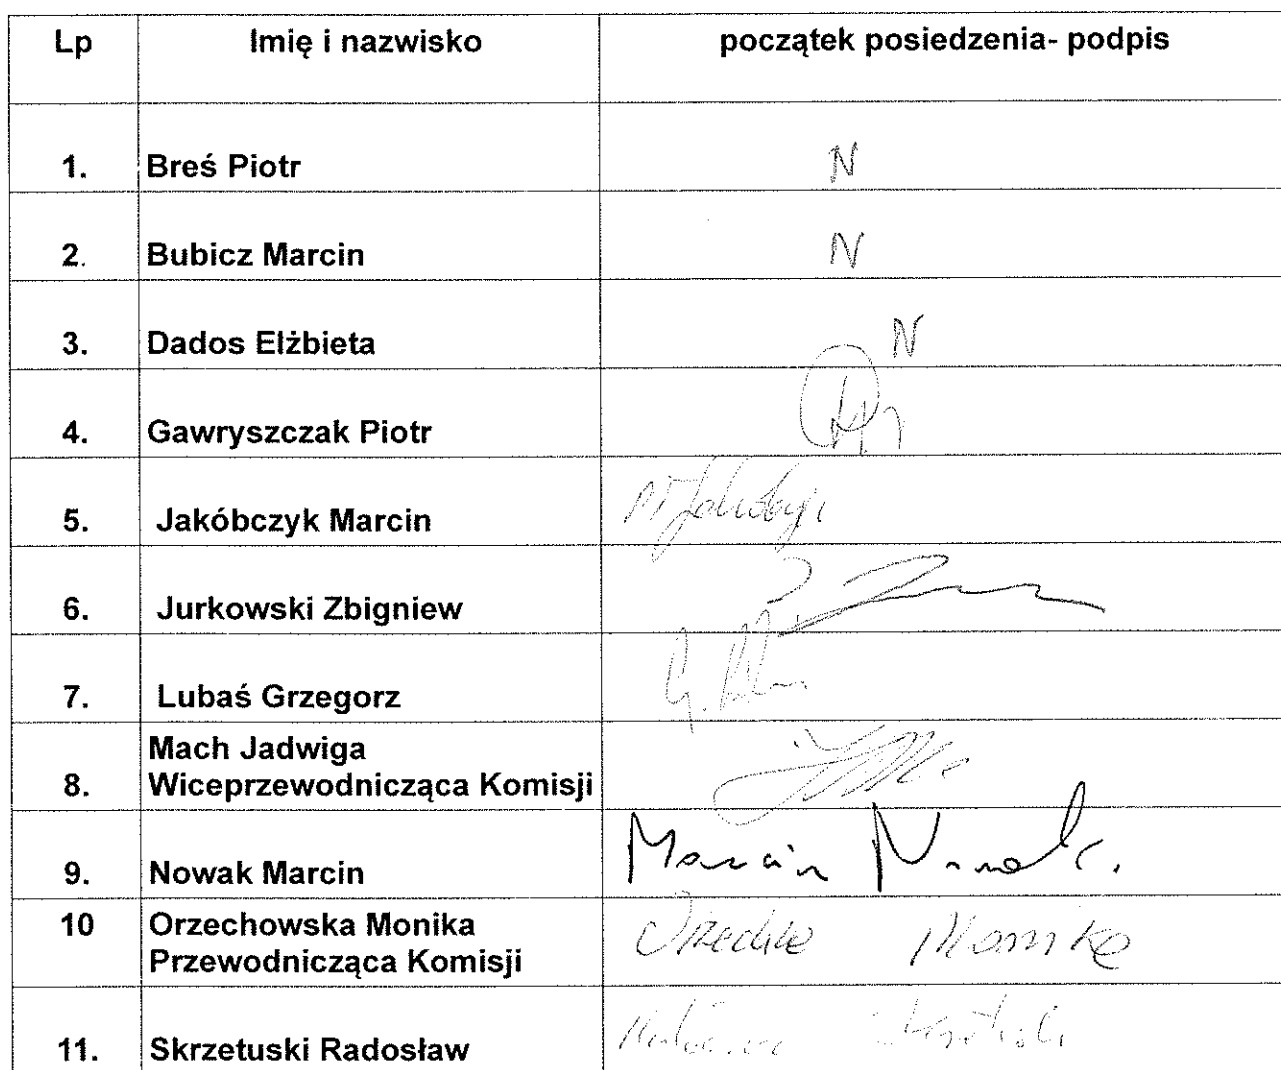 Lp Imię i nazwisko początek posiedzenia- podpis
1. Breś Piotr N
2. Bubicz Marcin N
3. Dados Elżbieta N
4. Gawryszczak Piotr
5. Jakóbczyk Marcin
6. Jurkowski Zbigniew
7. Lubaś Grzegorz
Mach Jadwiga
8. Wiceprzewodnicząca Komisji
9. Nowak Marcin Marcin Nowak.
10 Orzechowska Monika Monika
Przewodnicząca Komisji
11. Skrzetuski Radosław